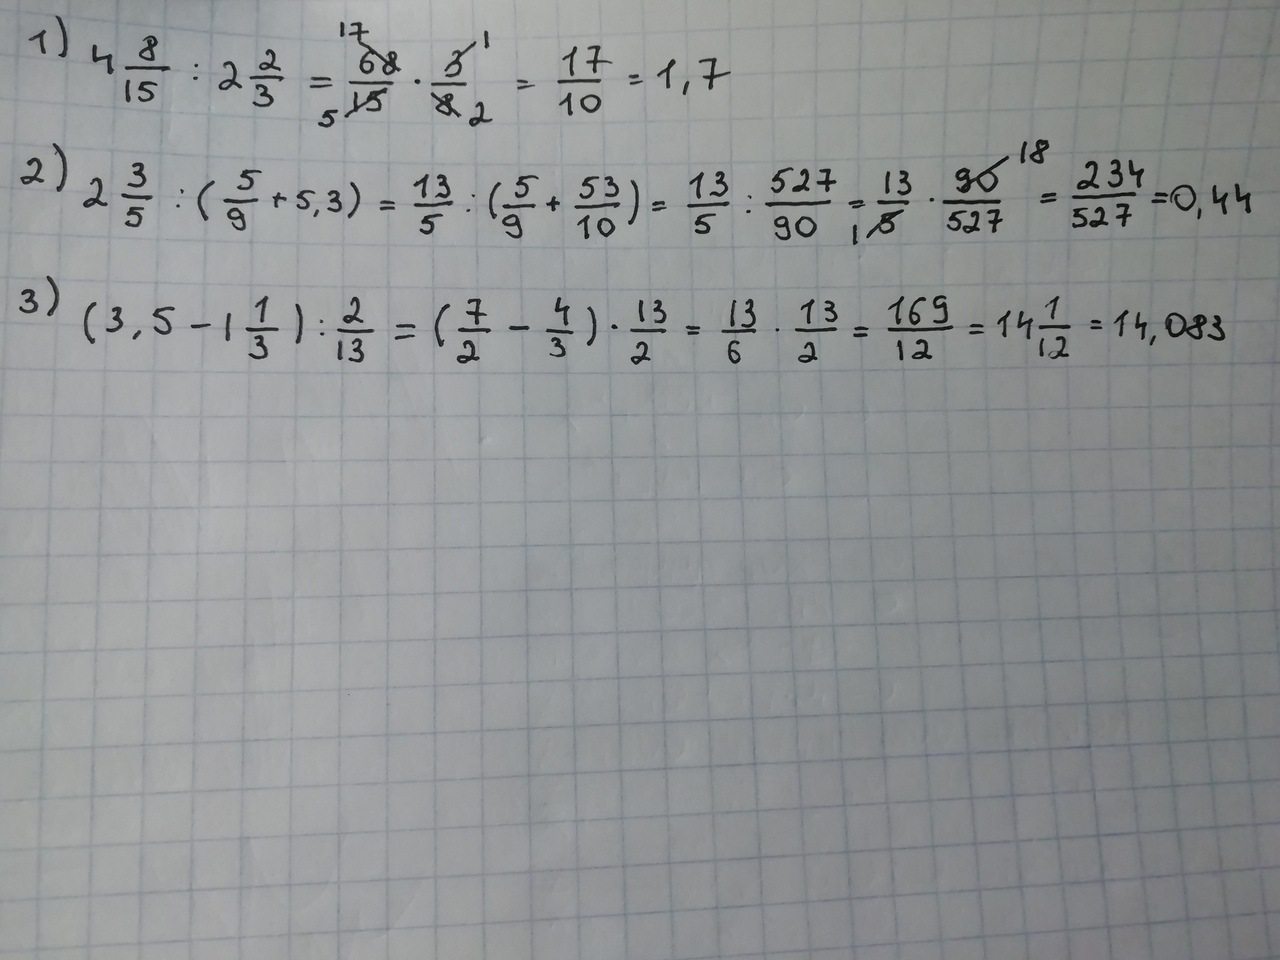 1) 4 8/15 : 2 2/3 = 17 68/15 5 · 3/8 1 2 = 17/10 = 1,7
2) 2 3/5 : (5/9 + 5,3) = 13/5 : (5/9 + 53/10) = 13/5 : 527/90 = 13/5 1 · 90/527 18 = 234/527 = 0,44
3) (3,5 - 1 1/3) : 2/13 = (7/2 - 4/3) · 13/2 = 13/6 · 13/2 = 169/12 = 14 1/12 = 14,083